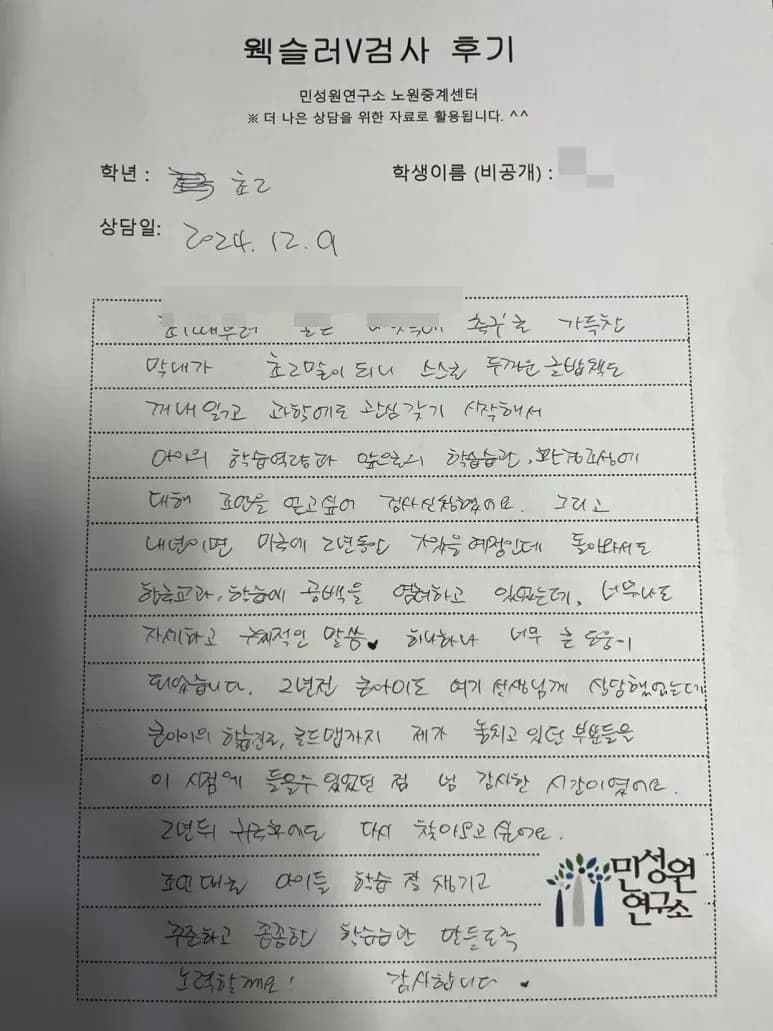 웩슬러V검사 후기
민성원연구소 노원중계센터
※ 더 나은 상담을 위한 자료로 활용됩니다. ^^
학년 : 초2 학생이름 (비공개) :
상담일: 2024. 12. 9
축구로 가득찬
막내가 초2말이 되니 스스로 두꺼운 글밥책도
꺼내 읽고 과학에도 관심갖기 시작해서
아이의 학습역량과 앞으로의 학습습관, 환경조성에
대해 조언을 얻고싶어 검사신청했어요. 그리고
내년이면 미국에 2년동안 가있을예정인데 돌아와서도
학습에 공백을 염려하고 있었는데, 너무나도
자세하고 구체적인 말씀♥ 하나하나 너무 큰 도움이
되었습니다. 2년전 큰아이도 여기 선생님께 상담했었는데
큰아이의 학습진로, 로드맵까지 제가 놓치고 있던 부분들을
이 시점에 들을수 있었던 점 넘 감사한 시간이였어요.
2년뒤 귀국후에도 다시 찾아오고 싶어요.
조언대로 아이들 학습 잘 챙기고
꾸준하고 꼼꼼한 학습습관 만들도록
노력할께요! 감사합니다 ♥
민성원
연구소